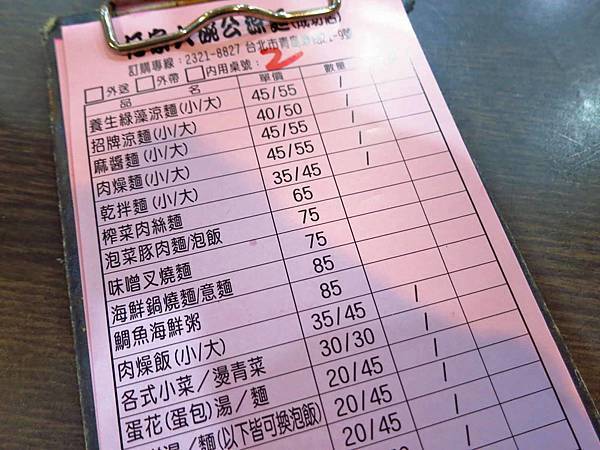 大碗公涼麵(成功店)
訂購專線：2321-8827 台北市青島
□外送 □外帶 □內用桌號： 2
品 名 單價 數量
養生綠藻涼麵(小/大) 45/55 /
招牌涼麵(小/大) 40/50 /
麻醬麵(小/大) 45/55 /
肉燥麵(小/大) 45/55 /
乾拌麵(小/大) 35/45 /
榨菜肉絲麵 65
泡菜豚肉麵/泡飯 75
味噌叉燒麵 75
海鮮鍋燒麵/意麵 85
鯛魚海鮮粥 85
肉燥飯(小/大) 35/45 /
各式小菜／燙青菜 30/30 /
蛋花(蛋包)湯／麵 20/45 /
湯／麵(以下皆可換泡飯) 20/45 /
20/45 /